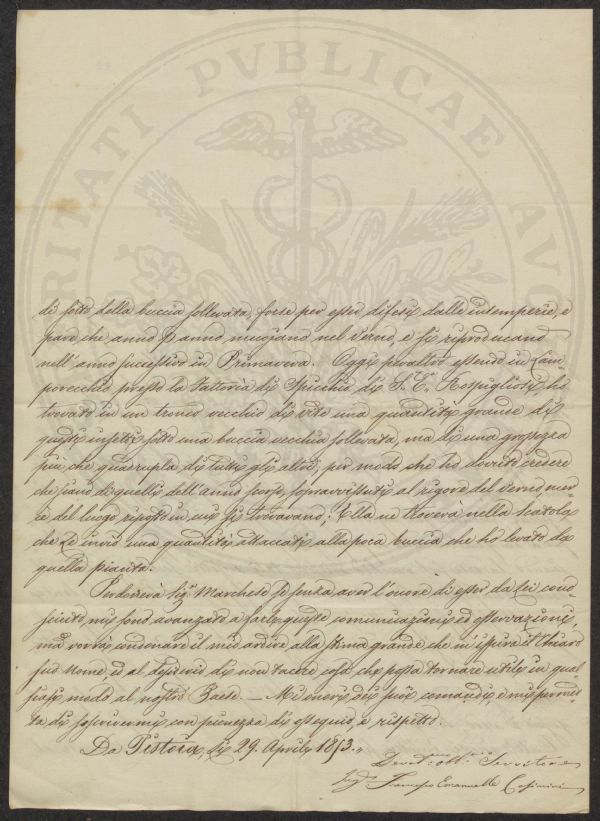 PROSPERITATI PVBLICAE AVG
di sotto della buccia sollevata, forse per esser difesi dalle intemperie, e
pare che anno p anno muojano nel Verno, e si riproducano
nell'anno successivo in Primavera. Oggi peraltro essendo in Lam
porecchio presso la Fattoria di Spicchio di S. E. Rospigliosi, ho
trovato in un tronco vecchio di vite una quantità grande di
questi insetti sotto una buccia vecchia sollevata, ma di una grossezza
più che quadrupla di tutti gli altri, per modo che ho dovuto credere
che siano di quelli dell'anno scorso, sopravvissuti al rigore del Verno, mer-
cè del luogo riposto in cui si trovavano: Ella ne troverà nella Scatola
che Le invio una quantità attaccati alla poca buccia che ho levato da
quella pianta.
Perdonerà Sig. Marchese se senza aver l'onore di esser da Lei cono-
sciuto, mi sono avanzato a farle queste comunicazioni ed osservazioni,
ma vorrà condonare il mio ardire alla stima grande che m'ispira il Chiaro
suo Nome, ed al desiderio di non tacere cosa che possa tornare utile in qual
siasi modo al nostro Paese. — Mi onori dei suoi comandi, e mi permet-
ta di soscrivermi con pienezza di ossequio, e rispetto.
Da Pistoia, li 29. Aprile 1853.
Devot. obb. Servitore
Francesco Emanuelle Cosimini